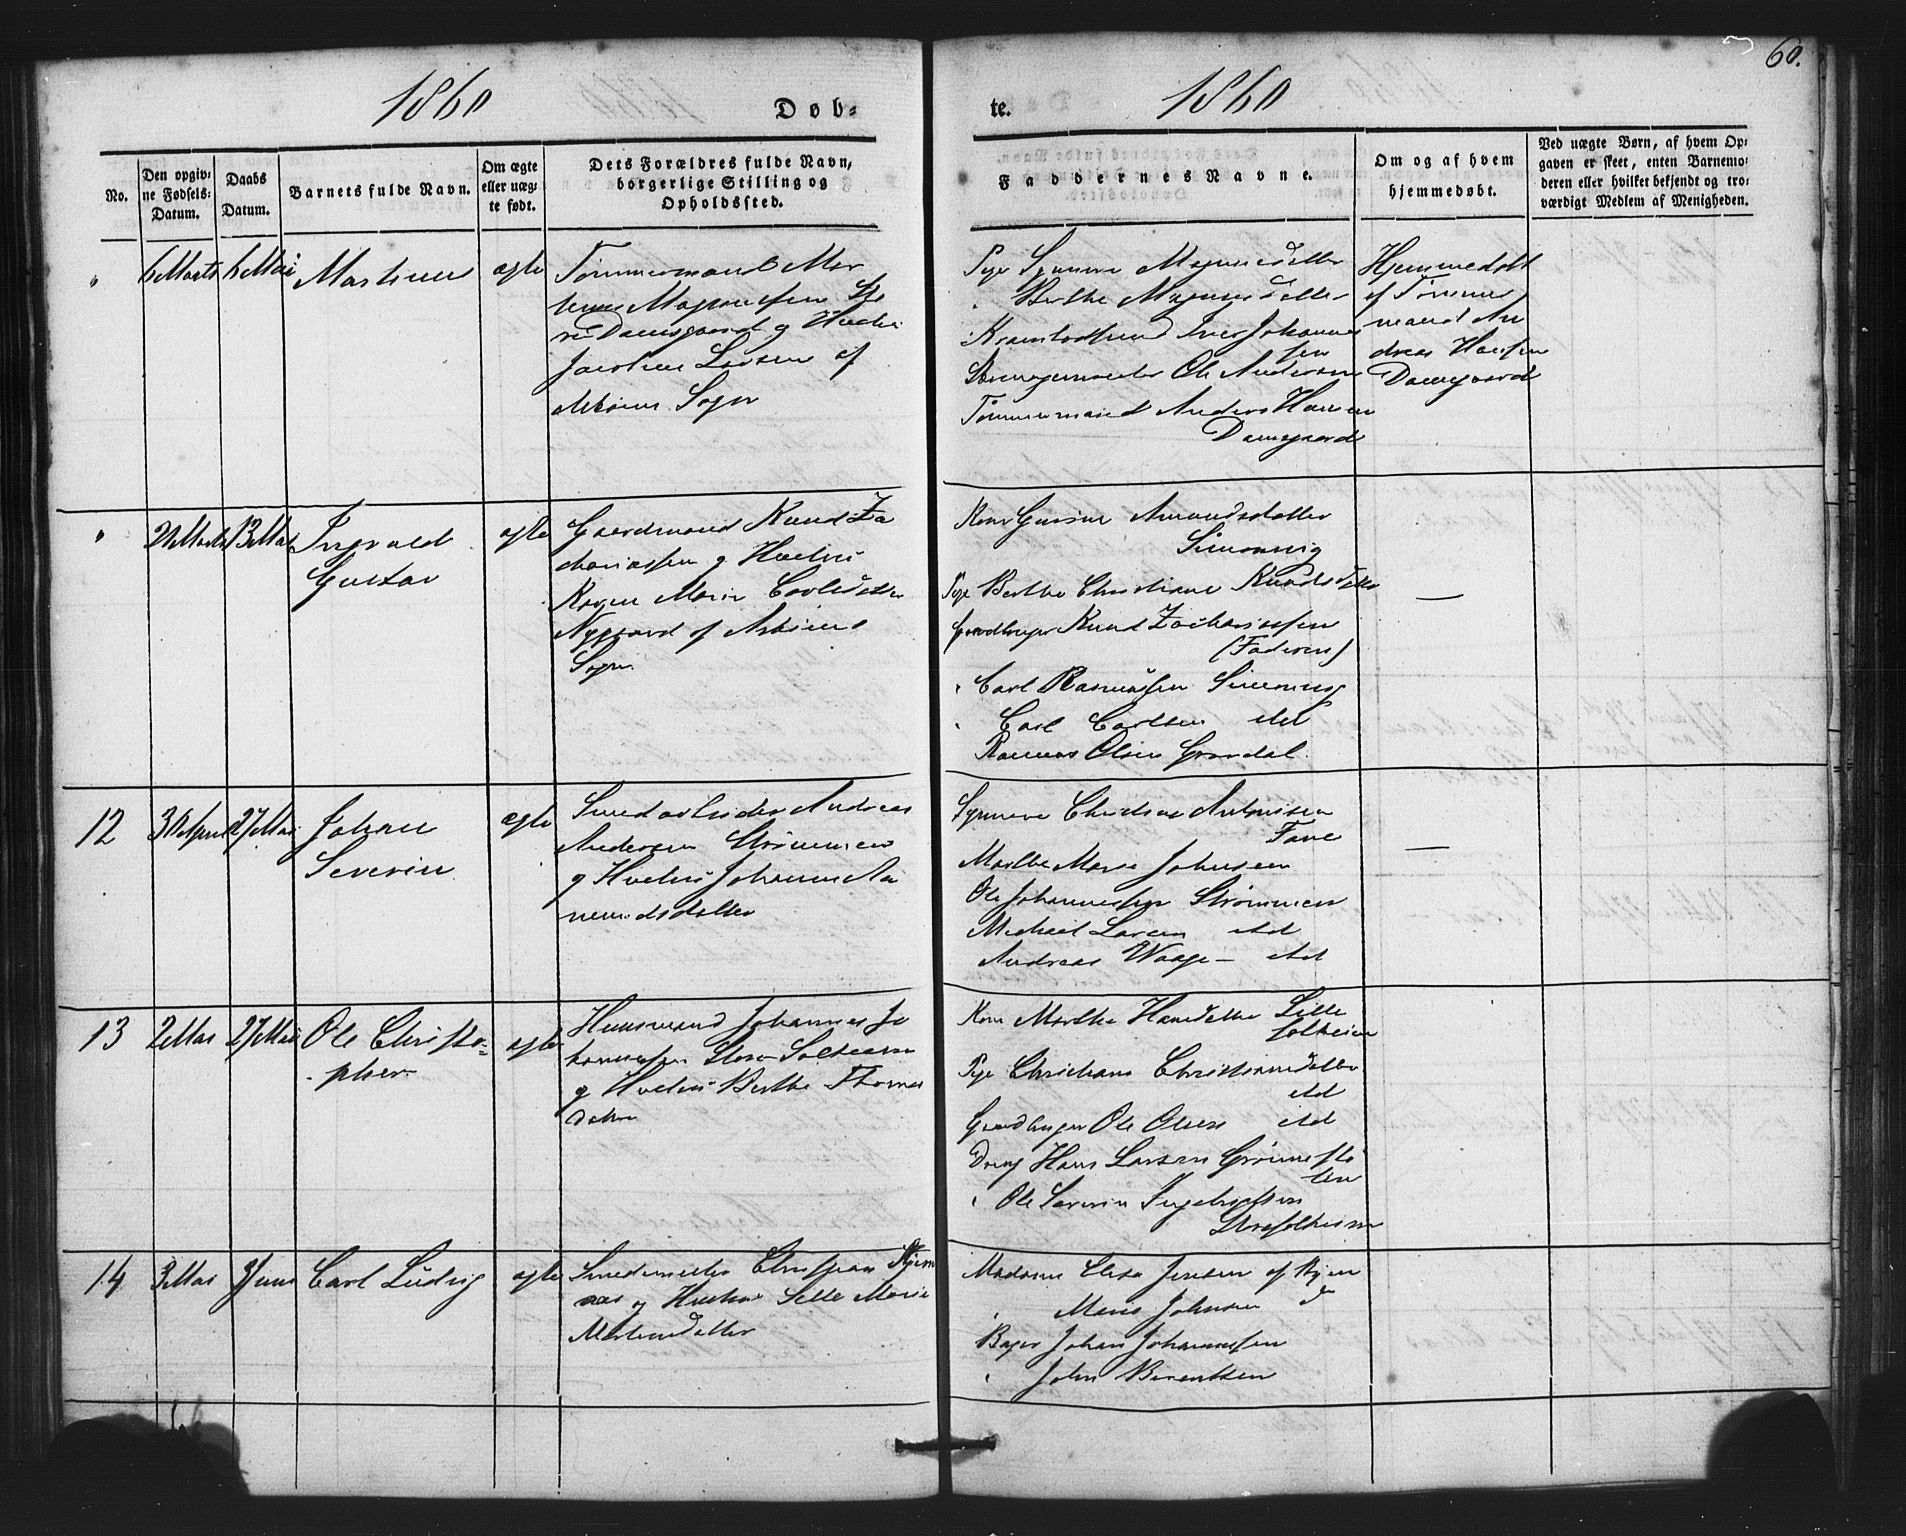 1860 Døb-
te. 1860 60.
No.
Den opgiv-
ne Fødsels-
Datum.
Daabs
Datum.
Barnets fulde Navn.
Om ægte
eller uæg-
te født.
Dets Forældres fulde Navn,
borgerlige Stilling og
Opholdssted.
Faddernes Navne.
Om og af hvem
hjemmedøbt.
Ved uægte Børn, af hvem Op-
gaven er skeet, enten Barnemo-
deren eller hvilket bekjendt og tro-
værdigt Medlem af Menigheden.
" 6 Marts 6 Mai
ægte
Tømmermand Mor
Damsgaard g Hustru
Larsen af
Sogn
Pige Synneve Magnusdatter
Berthe Magnusdatter
Iver Johannes
sen
Ole Andersen
Tømmermand Anders Hansen
Damsgaard
Hjemmedøbt
af Tømmer
mand An
dreas Hansen
Damsgaard
" 13 Mai
Ingvald
Gustav
ægte
Gaardmand Knud Za
chariassen g Hustru
Karen Marie Carlsdatter
Nygaard af Askøens
Sogn
Kone Gurine Amundsdatter
Simonsvig
Pige Berthe Christiane Knudsdatter
Gaardbruger Knud Zachariassen
(Faderen)
" Carl Rasmussen Simonsvig
" Carl Carlsen std
Rasmus Olsen Gravdal
—
12 3 April 27 Mai
Johan
Severin
ægte
Andreas
Andersen Strømmen
g Hustru Johanne Aa
mundsdatter
Synneve Antonisen
Marthe Marie Johnsen
Ole Johannessen Strømmen
Michael Larsen std
Andreas Waage — std
—
13 2 Mai 27 Mai
Ole Christo-
pher
ægte
Huusmand Johannes Jo
hannessen Store Solheim
g Hustru Berthe Thomas
datter
Kone Marthe Hansdatter Lille
Solheim
Pige Christiane Christiansdatter
std
Gaardbruger Ole Olsen std
Dreng Hans Larsen
" Ole Severin Ingebrigtsen
Storesolheim
14 3 Mai 3 Juni
Carl Ludvig
ægte
Smedemester Christian
og Hustru Sille Marie
Martinsdatter
Madame Elisa Jensen af Byen
" Marie Johnsen do
Bager Johan Johannessen
" John Berentsen